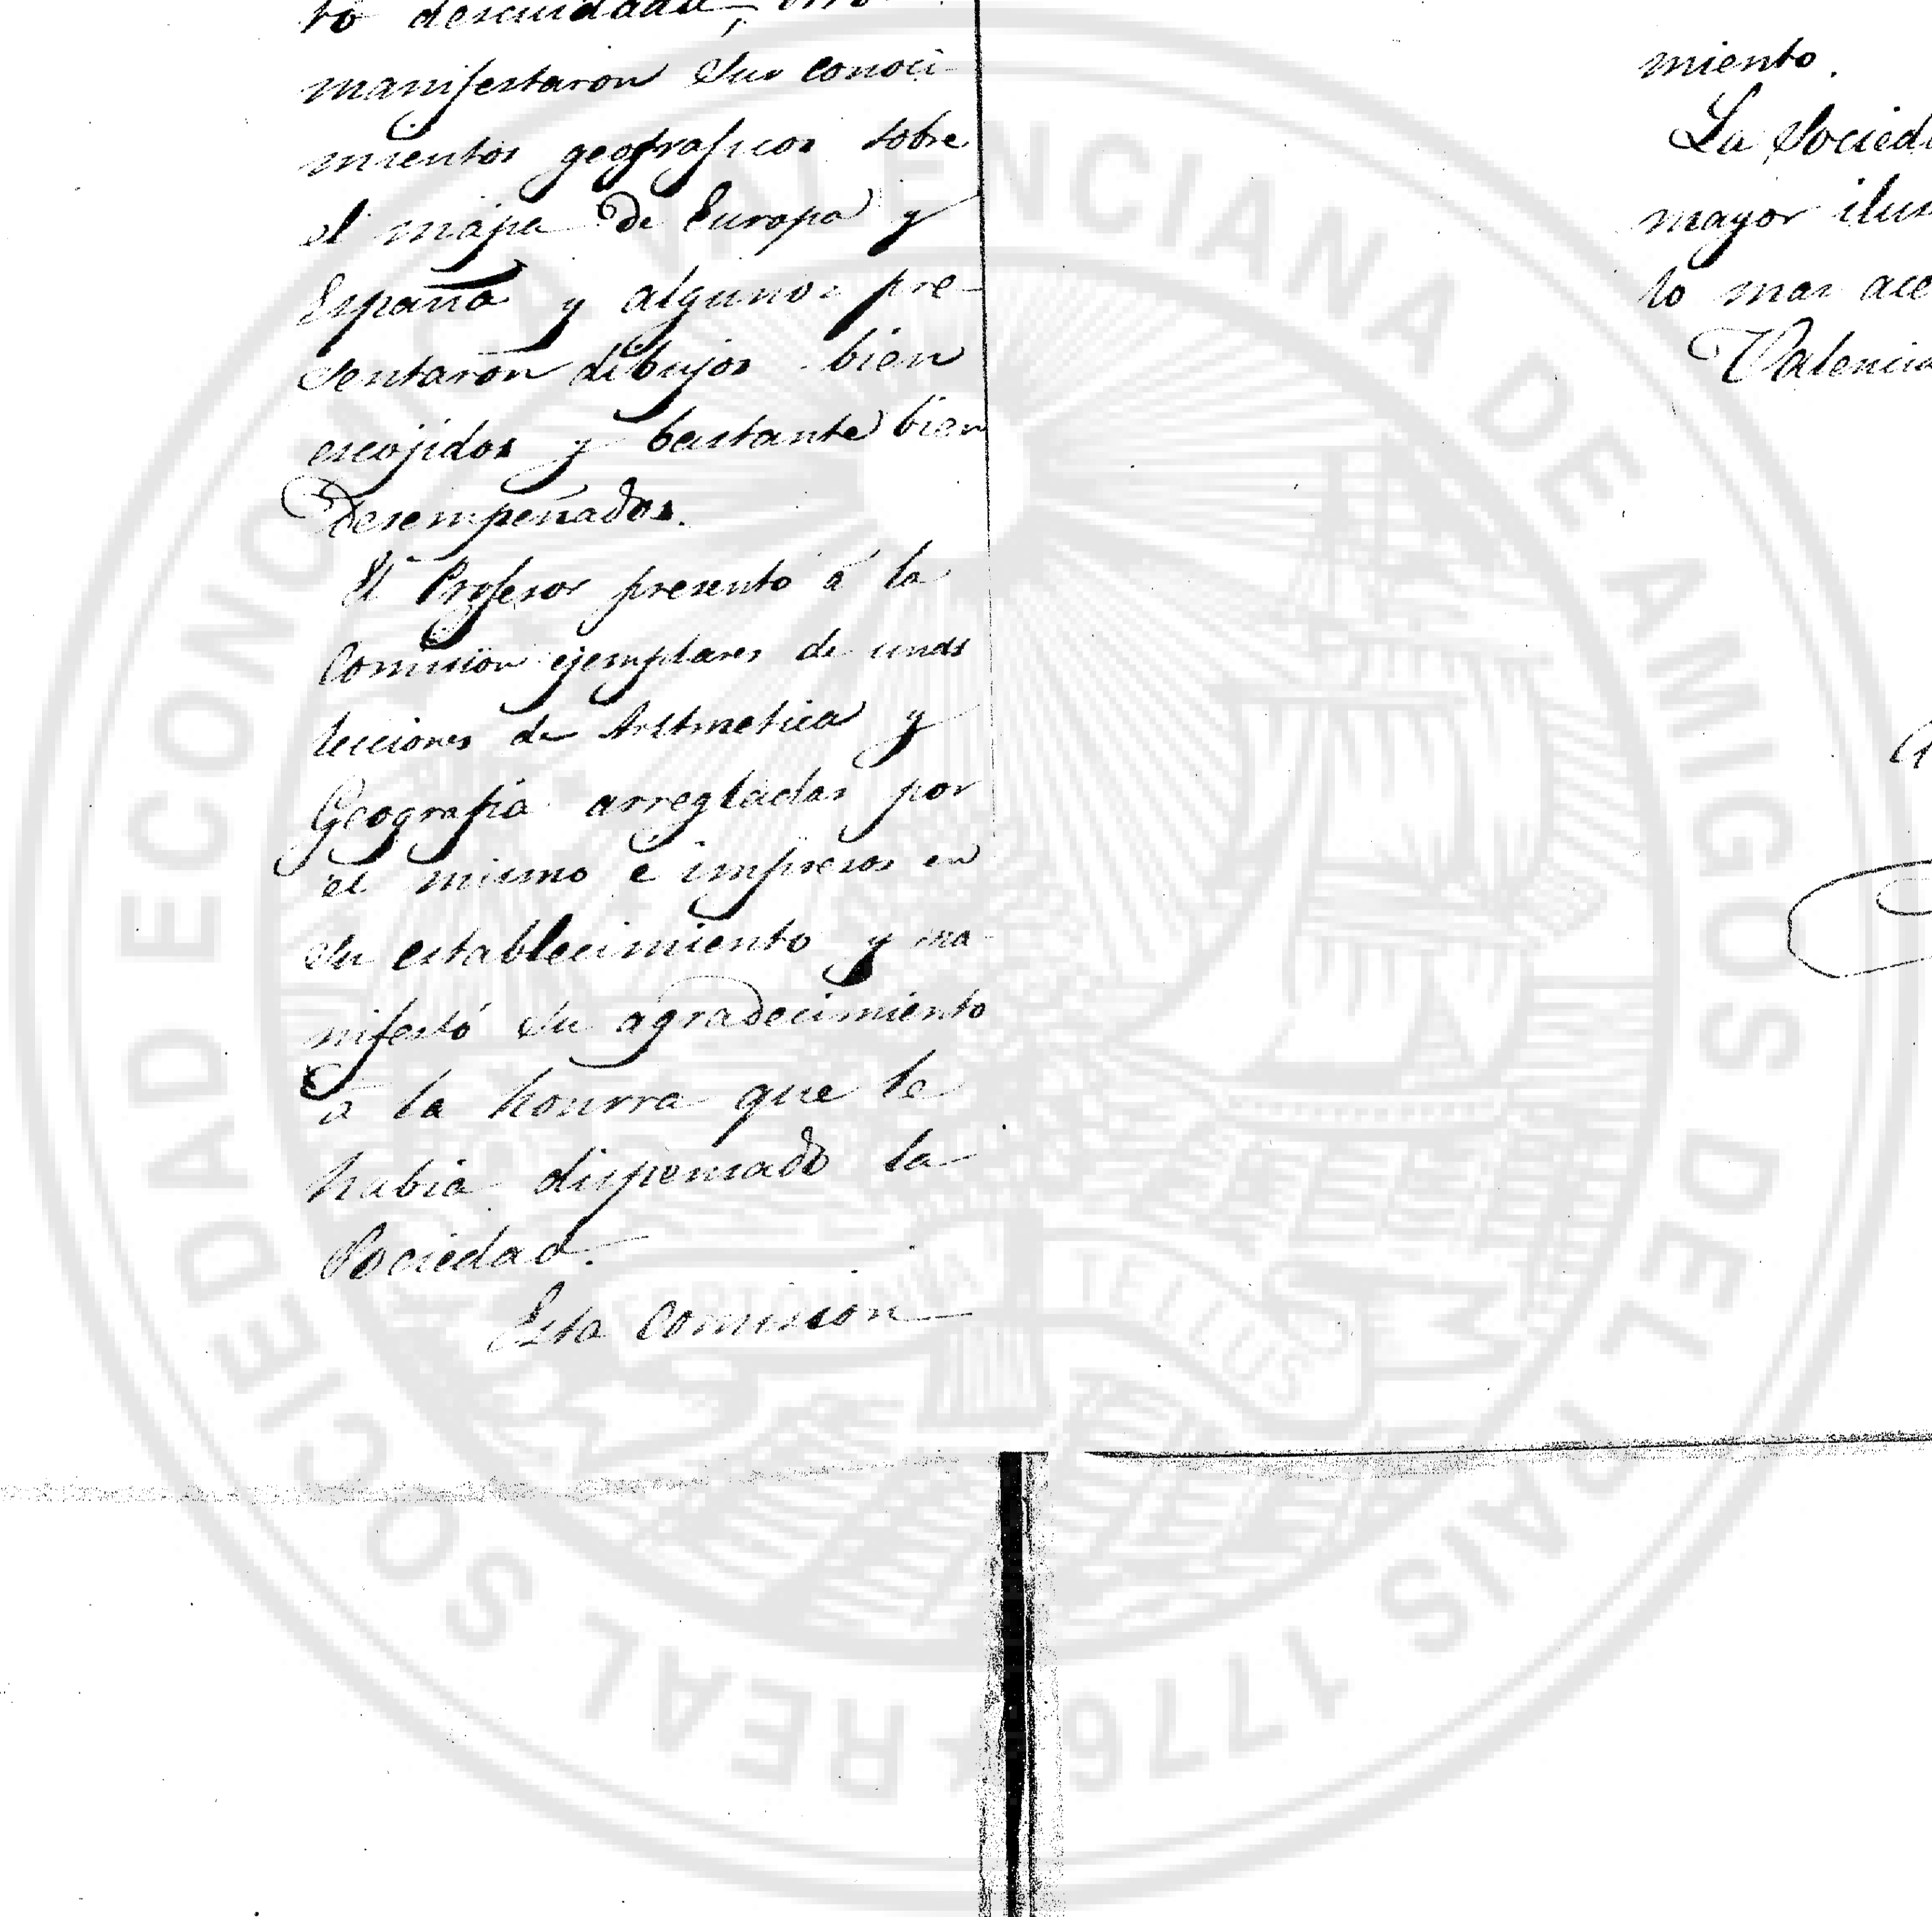 manifestaron sus conoci-
mientos geograficos sobre
el mapa de Europa y
España y algunos pre-
sentaron dibujos bien
escojidos y bastante bien
desempeñados.
El Profesor presentó á la
Comision ejemplares de unas
lecciones de Aritmetica y
Geografia arregladas por
el mismo e impresos en
su establecimiento y ma-
nifestó su agradecimiento
á la honrra que le
habia dispensado la
Sociedad.
Esta Comision
miento.
La Socied
mayor ilus
lo mas ace
Valencia
REAL SOCIEDAD ECONOMICA VALENCIANA DE AMIGOS DEL PAIS 1776